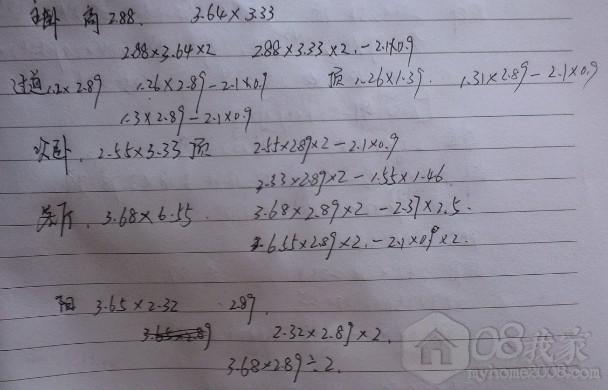 主卧 高 2.88. 3.64×3.33
2.88×3.64×2 2.88×3.33×2.-2.1×0.9
过道 1.2×2.89 1.26×2.89-2.1×0.9 顶 1.26×1.39. 1.31×2.89-2.1×0.9
1.3×2.89-2.1×0.9
次卧. 2.55×3.33 顶 2.55×2.89×2-2.1×0.9
3.33×2.89×2-1.55×1.46
客厅. 3.68×6.55. 3.68×2.89×2-2.37×2.5.
6.55×2.89×2.-2.1×0.9×2.
阳 3.65×2.32 2.89.
3.65×2.89 2.32×2.89×2.
3.68×2.89÷2.
08我家
myhome2008.com